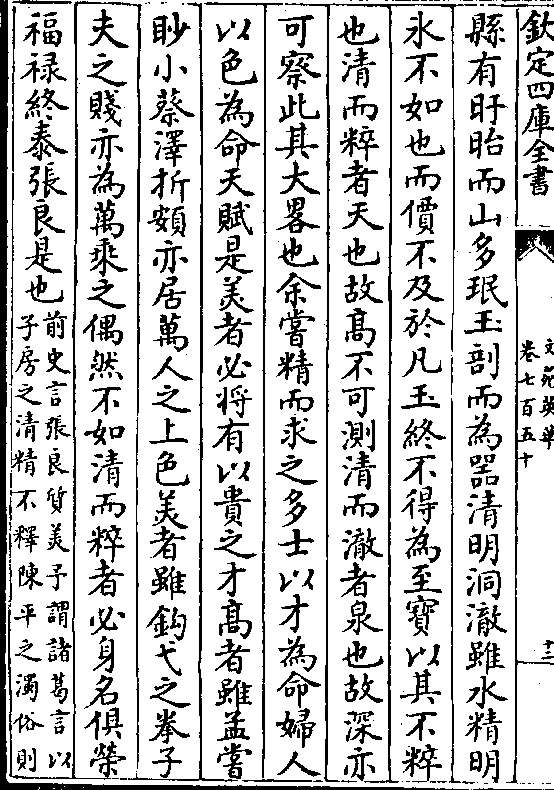 欽定四庫全書
文苑英華
卷七百五十
十二
縣有盱眙而山多珉玉剖而為器清明洞澈雖水精明
氷不如也而價不及於凡玉終不得為至寶以其不粹
也清而粹者天也故髙不可測清而澈者泉也故深亦
可察此其大畧也余嘗精而求之多士以才為命婦人
以色為命天賦是美者必將有以貴之才髙者雖孟嘗
眇小蔡澤折頞亦居萬人之上色美者雖鈎弋之拳子
夫之賤亦為萬乗之偶然不如清而粹者必身名俱榮
福禄終泰張良是也前史言張良質美予謂諸葛言以
子房之清精不釋陳平之濁俗則